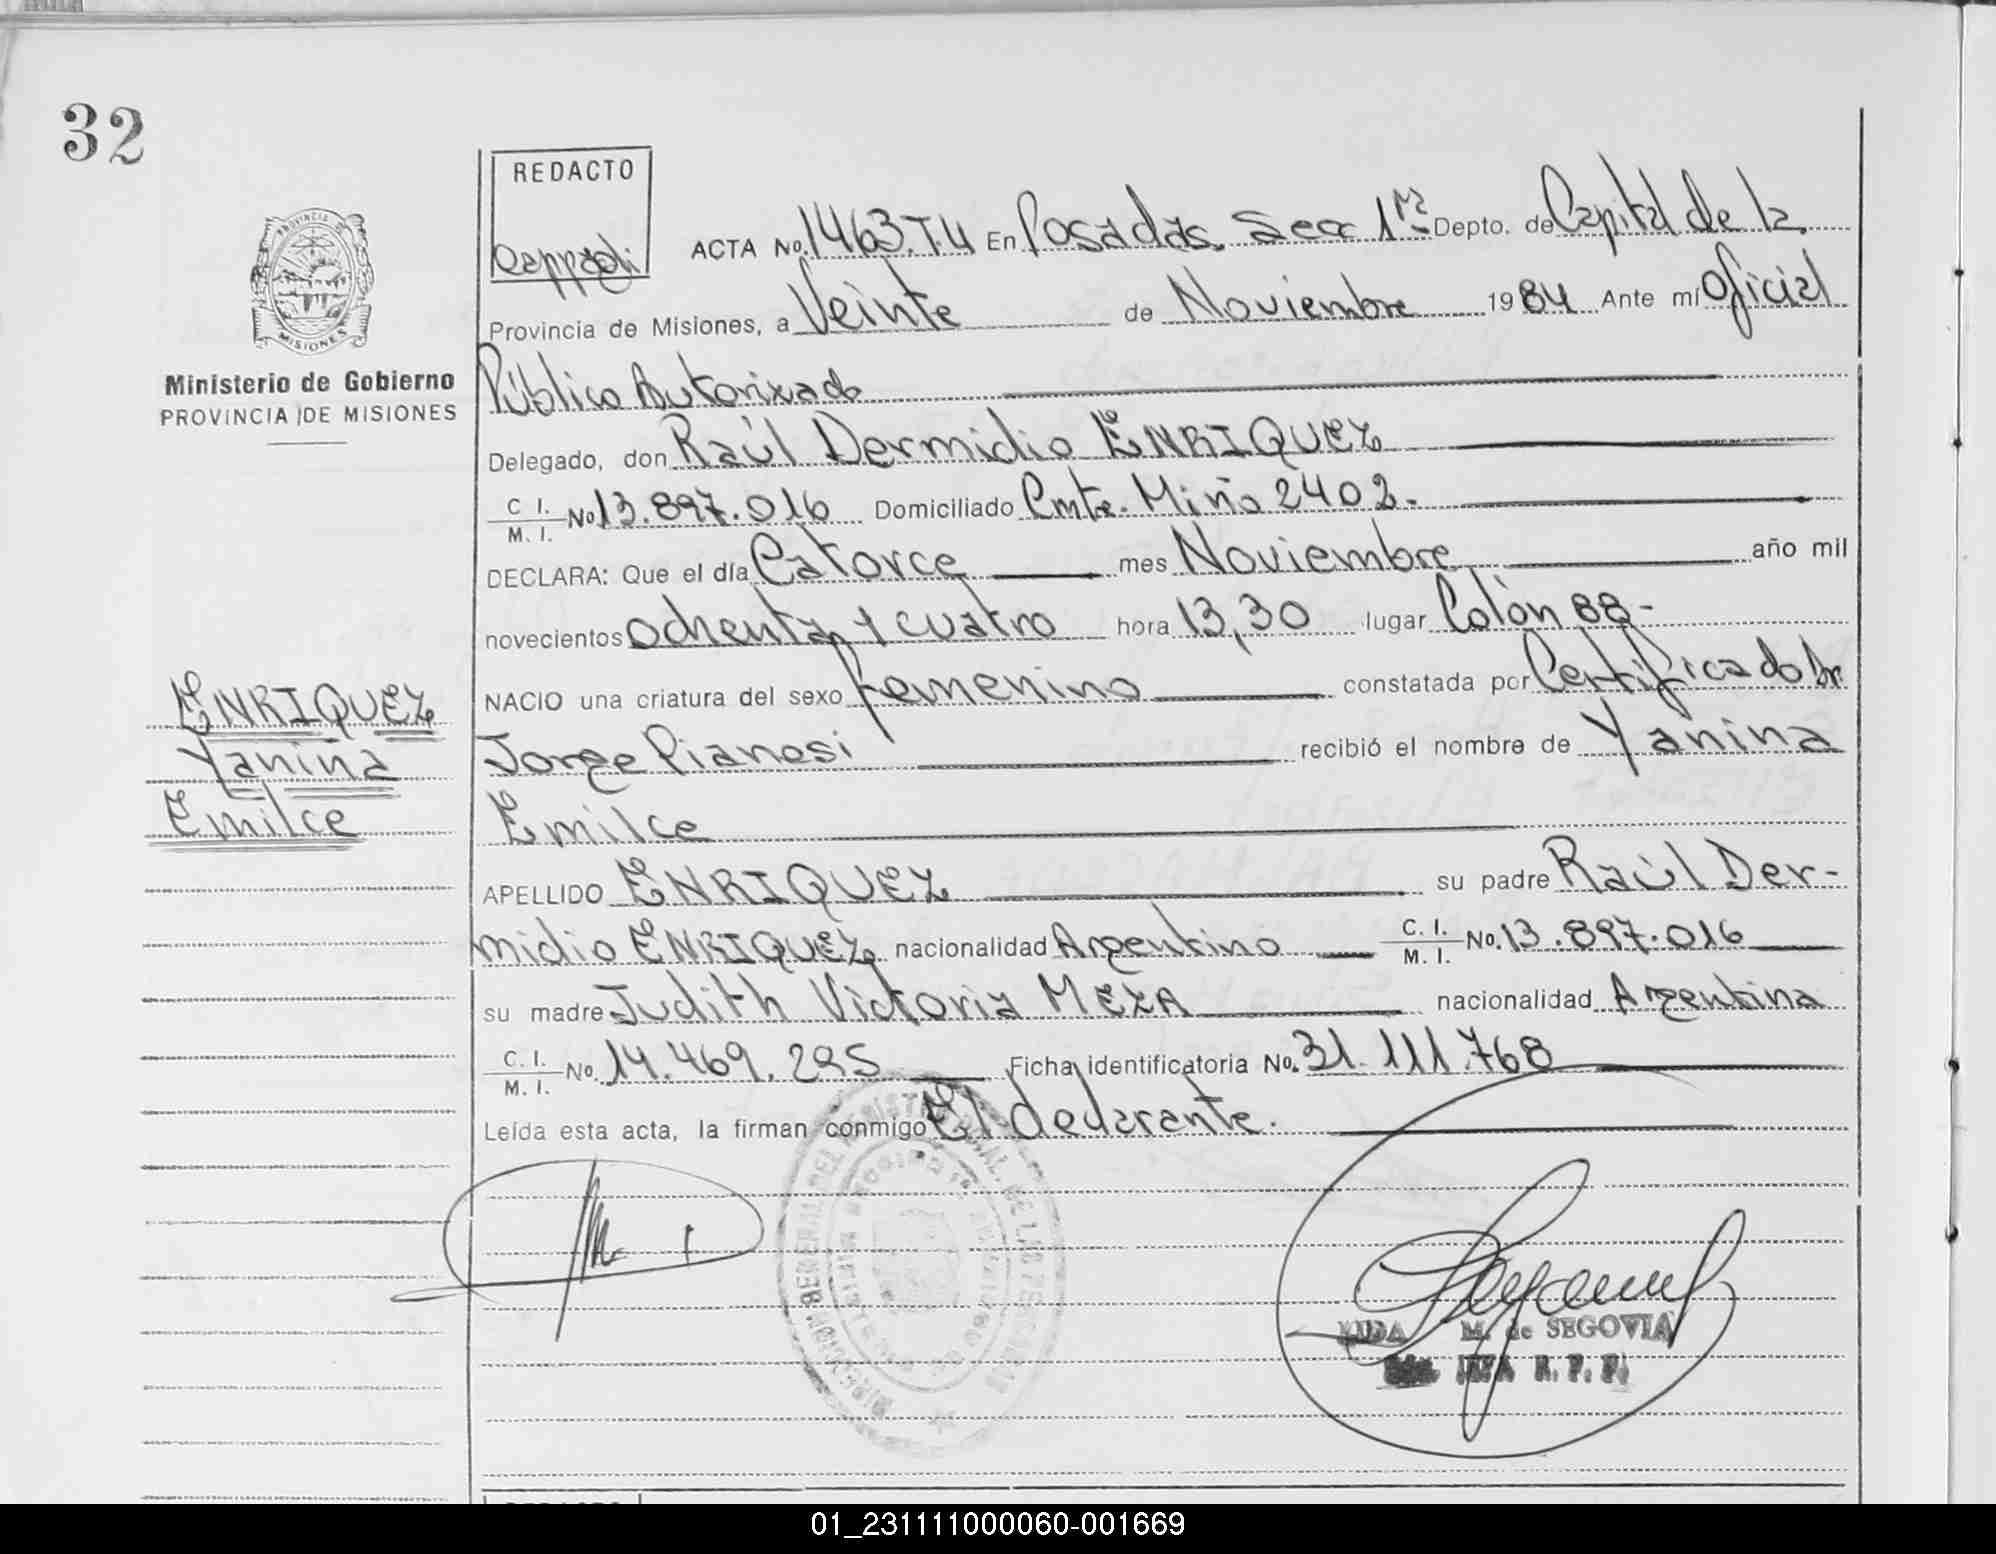 32
REDACTO
PROVINCIA DE
MISIONES
ACTA No. 1463.T.4 En Posadas Secc 1ra Depto. de Capital de la
Provincia de Misiones, a Veinte de Noviembre 1984 Ante mí Oficial
Ministerio de Gobierno
PROVINCIA DE MISIONES
Público Autorizado
Delegado, don Raúl Dermidio ENRIQUEZ
C. I. / M. I. No 13.897.016 Domiciliado Cmte. Miño 2402.-
DECLARA: Que el día Catorce mes Noviembre año mil
novecientos ochenta y cuatro hora 13,30 lugar Colón 88-
NACIO una criatura del sexo femenino constatada por Certificado Dr
Jorge Pianesi recibió el nombre de Yanina
Emilce
ENRIQUEZ
Yanina
Emilce
APELLIDO ENRIQUEZ su padre Raúl Der-
midio ENRIQUEZ nacionalidad Argentino C. I. / M. I. No. 13.897.016
su madre Judith Victoria MEZA nacionalidad Argentina
C. I. / M. I. No. 14.469.295 Ficha identificatoria No. 31.111.768
Leída esta acta, la firman conmigo El declarante.
M. de SEGOVIA
R. P. P.
01_231111000060-001669